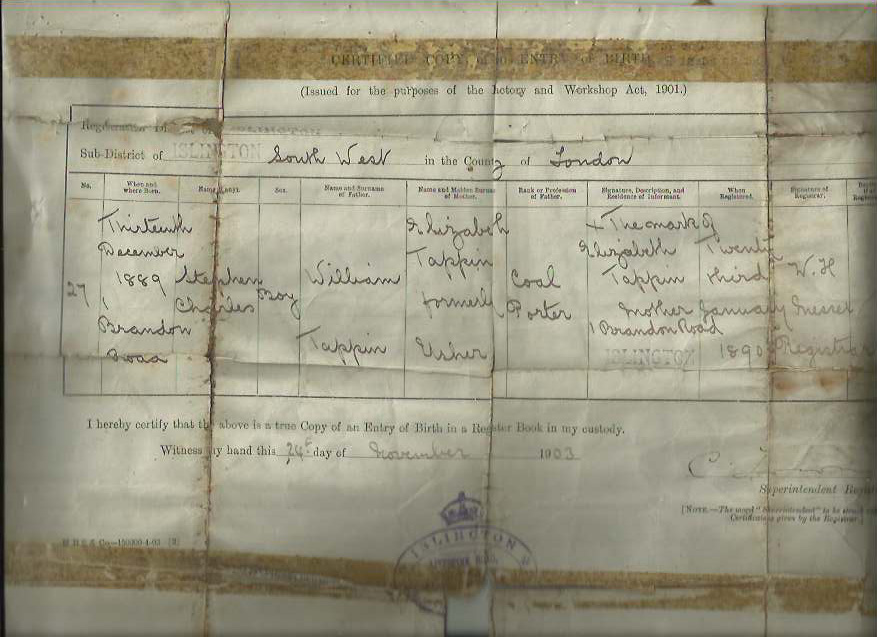 CERTIFIED COPY of an ENTRY OF BIRTH
(Issued for the purposes of the Factory and Workshop Act, 1901.)
Registration District of ISLINGTON
Sub-District of ISLINGTON South West in the County of London
No. When and where Born. Name, if any. Sex. Name and Surname of Father. Name and Maiden Surname of Mother. Rank or Profession of Father. Signature, Description, and Residence of Informant. When Registered. Signature of Registrar.
27
Thirteenth
December
1889
1
Brandon
Road
Stephen
Charles
Boy
William
Tappin
Elizabeth
Tappin
formerly
Usher
Coal
Porter
X The mark of
Elizabeth
Tappin
Mother
1 Brandon Road
ISLINGTON
Twenty
third
January
1890
W. H
Registrar
I hereby certify that the above is a true Copy of an Entry of Birth in a Register Book in my custody.
Witness my hand this 24th day of November 1903
Superintendent Regis
[NOTE.—The word "Superintendent" to be
Certificates given by the Registrar.
ISLINGTON